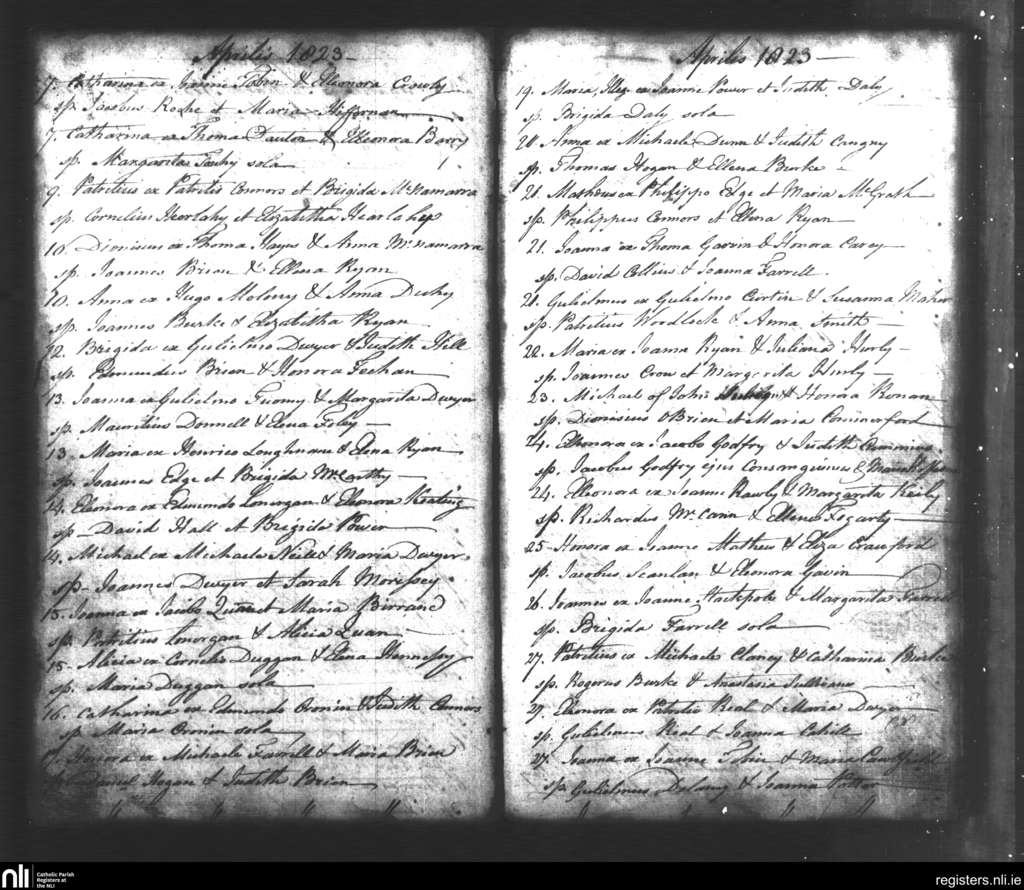 Aprilis 1823
7. Catharina ex Joanne Tobin & Elleonora Crowly
sp. Jacobus Roche et Maria Heffernan
7. Catharina ex Thoma Lawlor & Elleonora Barry
sp. Margarita sola
9. Patritius ex Patritio Connors et Brigida McNamarra
sp. Cornelius et Elizabetha
10. Dionisius ex Thoma Hayes & Anna McNamarra
sp. Joannes Brien & Ellena Ryan
10. Anna ex Hugo Molony & Anna
sp. Joannes Burke & Elizabetha Ryan
12. Brigida ex Gulielmo Dwyer & Judith Hill
sp. Edmundus Brien & Honora
13. Joanna ex Gulielmo & Margarita Dwyer
sp. Mauritius Donnell & Elena Foley
13. Maria ex Henrico Loughnane & Elena Ryan
sp. Joannes Edge et Brigida McCarthy
14. Eleonora ex Edmundo Lonorgan & Eleonora Keating
sp David Hall et Brigida Power
14. Michael ex Michaele Neill & Maria Dwyer
sp. Joannes Dwyer et Sarah Morissey
15. Joanna ex Jacobo et Maria
sp. Patritius Lonorgan & Alicia Quan
15. Alicia ex Cornelio Duggan & Elena Hennessy
sp. Maria Duggan sola
16. Catharina ex Edmundo Cronin & Judith Connors
sp Maria Cronin sola
Honora ex Michaele Farrell & Maria Brien
Daniel Hogan & Judith Brien
Aprilis 1823
19. Maria Illeg ex Joanne Power et Judith Daly
sp. Brigida Daly sola
20. Anna ex Michaele Dunn & Judith
sp. Thomas Hogan & Ellena Burke
21. Matheus ex Philippo Edge et Maria McGrath
sp. Philippus Connors et Ellena Ryan
21. Joanna ex Thoma Gavin & Honora Carey
sp. David Collins & Joanna Farrell.
21. Gulielmus ex Gulielmo Curtin & Susanna Maher
sp. Patritius Wordlock & Anna Smith
22. Maria ex Joanne Ryan & Juliana Hurly
sp. Joannes Crow et Margarita Hurly
23. Michael of John & Honora Ronan
sp. Dionisius OBrien et Maria Commerford
24. Elleonora ex Jacobo Godfry & Judith Cummins
sp. Jacobus Godfry ejus Consanguineus &
24. Elleonora ex Joanne Rawly & Margarita Kiely
sp. Richardus McCann & Ellena Fogarty
25 Honora ex Joanne Mathew & Eliza Crawford
sp. Jacobus Scanlan & Eleonora Gavin
26. Joannes ex Joanne Stackpole & Margarita Farrell
sp. Brigida Farrell sola
27. Patritius ex Michaele Clancy & Catharina Burke
sp. Rogerus Burke & Anastasia Sullivan
29. Eleonora ex Patritio Real & Maria Dwyer
sp. Gulielmus Real & Joanna Cahill
27. Joanna ex Joanne Tobin & Maria
sp Gulielmus Delany & Joanna
nli
Catholic Parish
Registers at
the NLI
registers.nli.ie